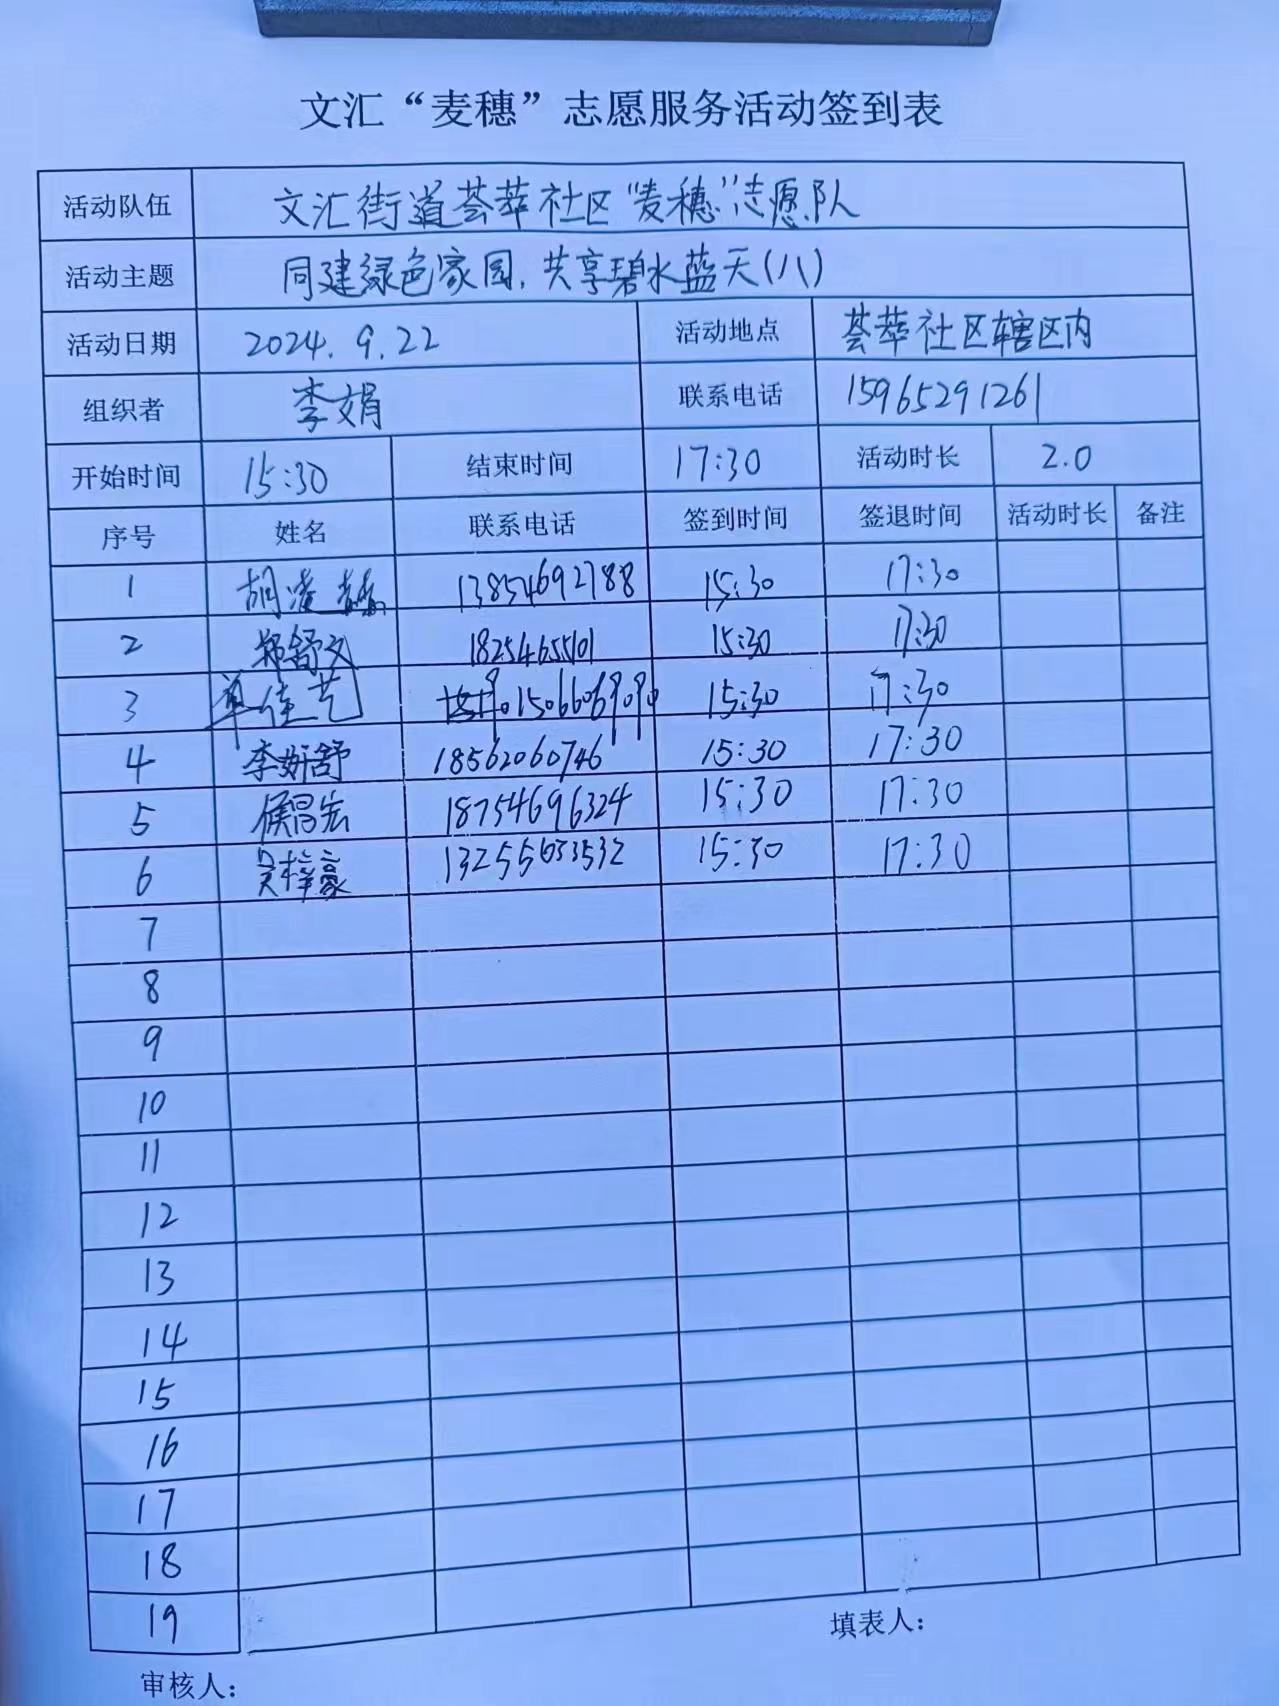 文汇“麦穗”志愿服务活动签到表
活动队伍 文汇街道荟萃社区“麦穗”志愿队
活动主题 同建绿色家园，共享碧水蓝天（八）
活动日期 2024.9.22 活动地点 荟萃社区辖区内
组织者 李娟 联系电话 15965291261
开始时间 15:30 结束时间 17:30 活动时长 2.0
序号 姓名 联系电话 签到时间 签退时间 活动时长 备注
1 胡凌 13854692788 15:30 17:30
2 郑舒文 15:30 17:30
3 单佳艺 15066069090 15:30 17:30
4 李妍舒 18562060746 15:30 17:30
5 侯昌宏 18754696324 15:30 17:30
6 吴梓豪 13255633532 15:30 17:30
7
8
9
10
11
12
13
14
15
16
17
18
19
填表人：
审核人：